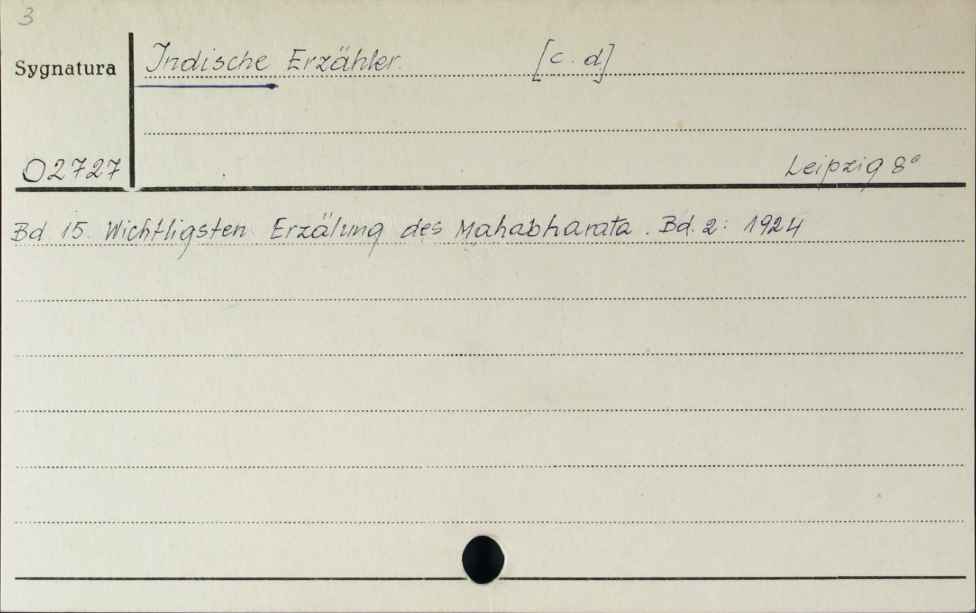 3
Sygnatura
Indische Erzähler. [c. d]
O2727
Leipzig 8°
Bd 15. Wichtligsten Erzälung des Mahabharata. Bd. 2: 1924